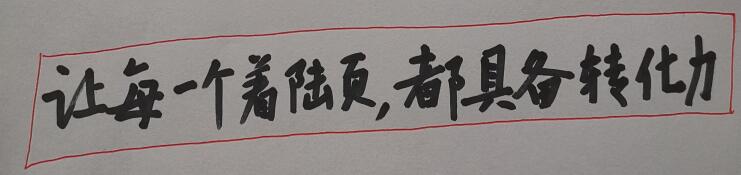 让每一个着陆页,都具备转化力